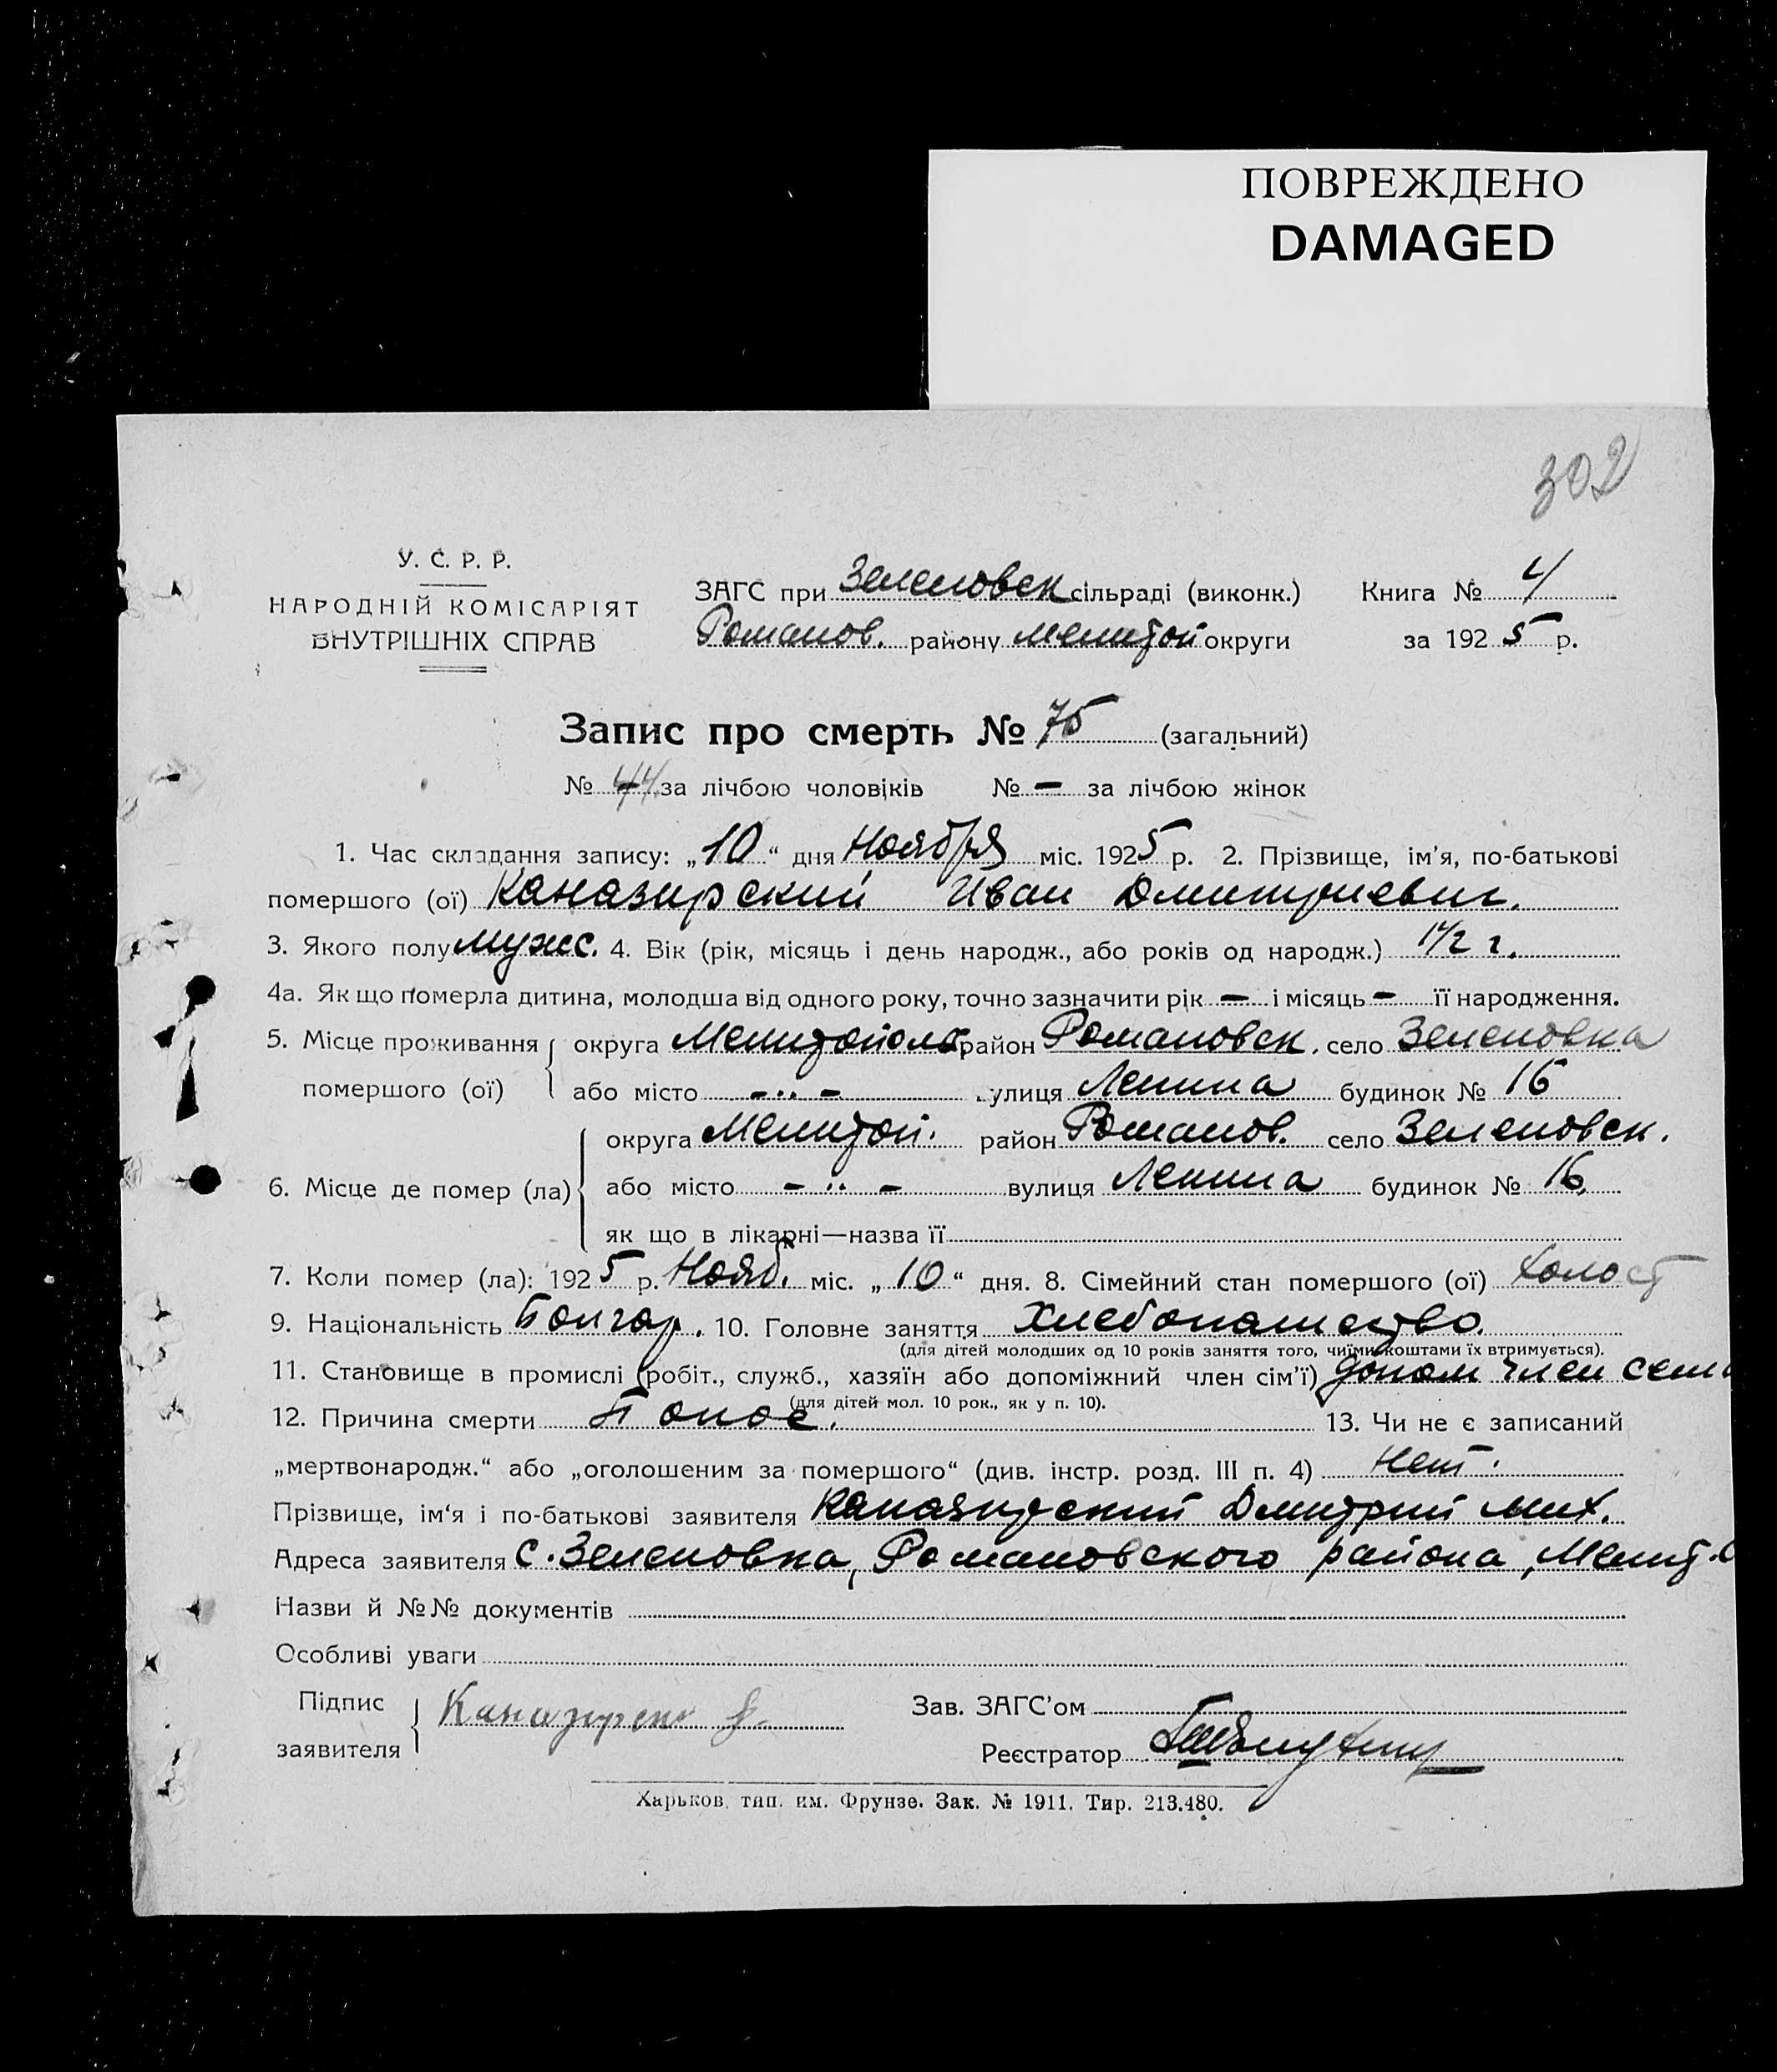 ПОВРЕЖДЕНО
DAMAGED
302
У. С. Р. Р.
НАРОДНІЙ КОМІСАРІЯТ
ВНУТРІШНІХ СПРАВ
ЗАГС при Зеленовск сільраді (виконк.) Книга № 4
Романов. району Мелитоп округи за 1925 р.
Запис про смерть № 75 (загальний)
№ 44 за лічбою чоловіків № — за лічбою жінок
1. Час складання запису: „10“ дня Ноября міс. 1925 р. 2. Прізвище, ім’я, по-батькові
помершого (ої) Каназирский Иван Дмитриевич.
3. Якого полу мужс. 4. Вік (рік, місяць і день народж., або років од народж.) 1½ г.
4а. Як що померла дитина, молодша від одного року, точно зазначити рік — і місяць — її народження.
5. Місце проживання округа Мелитопольс район Романовск. село Зеленовка
помершого (ої) або місто - ·· - вулиця Ленина будинок № 16
округа Мелитоп. район Романов. село Зеленовск.
6. Місце де помер (ла) або місто - ·· - вулиця Ленина будинок № 16.
як що в лікарні—назва її
7. Коли помер (ла): 1925 р. Нояб. міс. „10“ дня. 8. Сімейний стан помершого (ої) холост
9. Національність Болгар. 10. Головне заняття Хлебопашество.
(для дітей молодших од 10 років заняття того, чиїми коштами їх втримується).
11. Становище в промислі (робіт., служб., хазяїн або допоміжний член сім’ї) допом член семи
(для дітей мол. 10 рок., як у п. 10).
12. Причина смерти Понос. 13. Чи не є записаний
„мертвонародж.“ або „оголошеним за помершого“ (див. інстр. розд. III п. 4) Нет.
Прізвище, ім‘я і по-батькові заявителя Каназирский Дмитрий Мих.
Адреса заявителя с. Зеленовка, Романовского района, Мелит. О
Назви й №№ документів
Особливі уваги
Підпис Зав. ЗАГС’ом
заявителя Каназирски Реєстратор
Харьков, тип. им. Фрунзе. Зак. № 1911. Тир. 213.480.